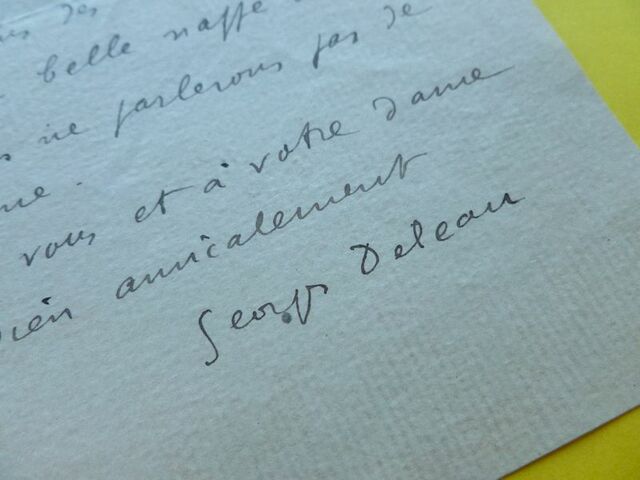 des
belle nappe
ne parlerons pas de
me.
vous et à votre dame
bien amicalement
Georges Deleau